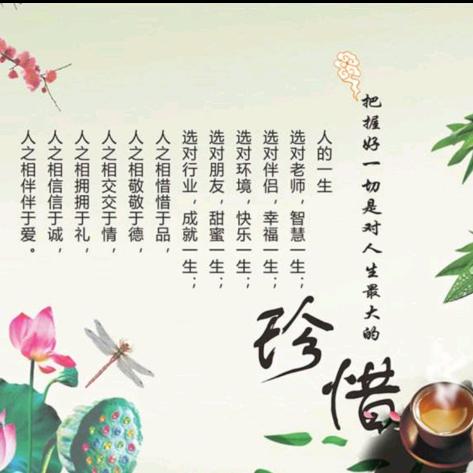 把握好一切是对人生最大的
珍惜
人的一生
选对老师，智慧一生；
选对伴侣，幸福一生；
选对环境，快乐一生；
选对朋友，甜蜜一生；
选对行业，成就一生；
人之相惜惜于品，
人之相敬敬于德，
人之相交交于情，
人之相拥拥于礼，
人之相信信于诚，
人之相伴伴于爱。